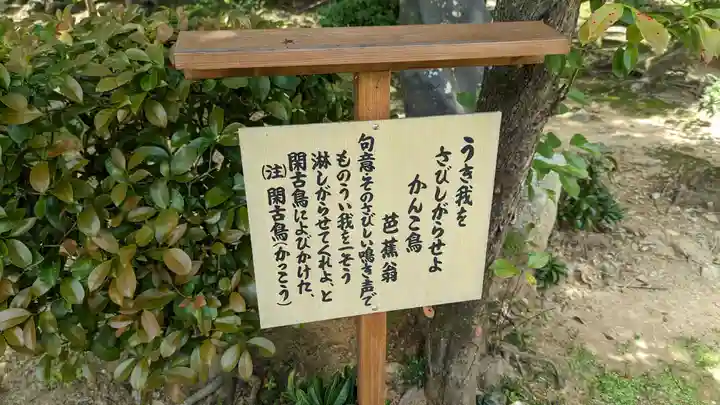 うき我を
さびしがらせよ
かんこ鳥
芭蕉翁
句意その さびしい鳴き声で
ものうい我を一そう
淋しがらせてくれよ、と
閑古鳥によびかけた、
(注)閑古鳥(かっこう)